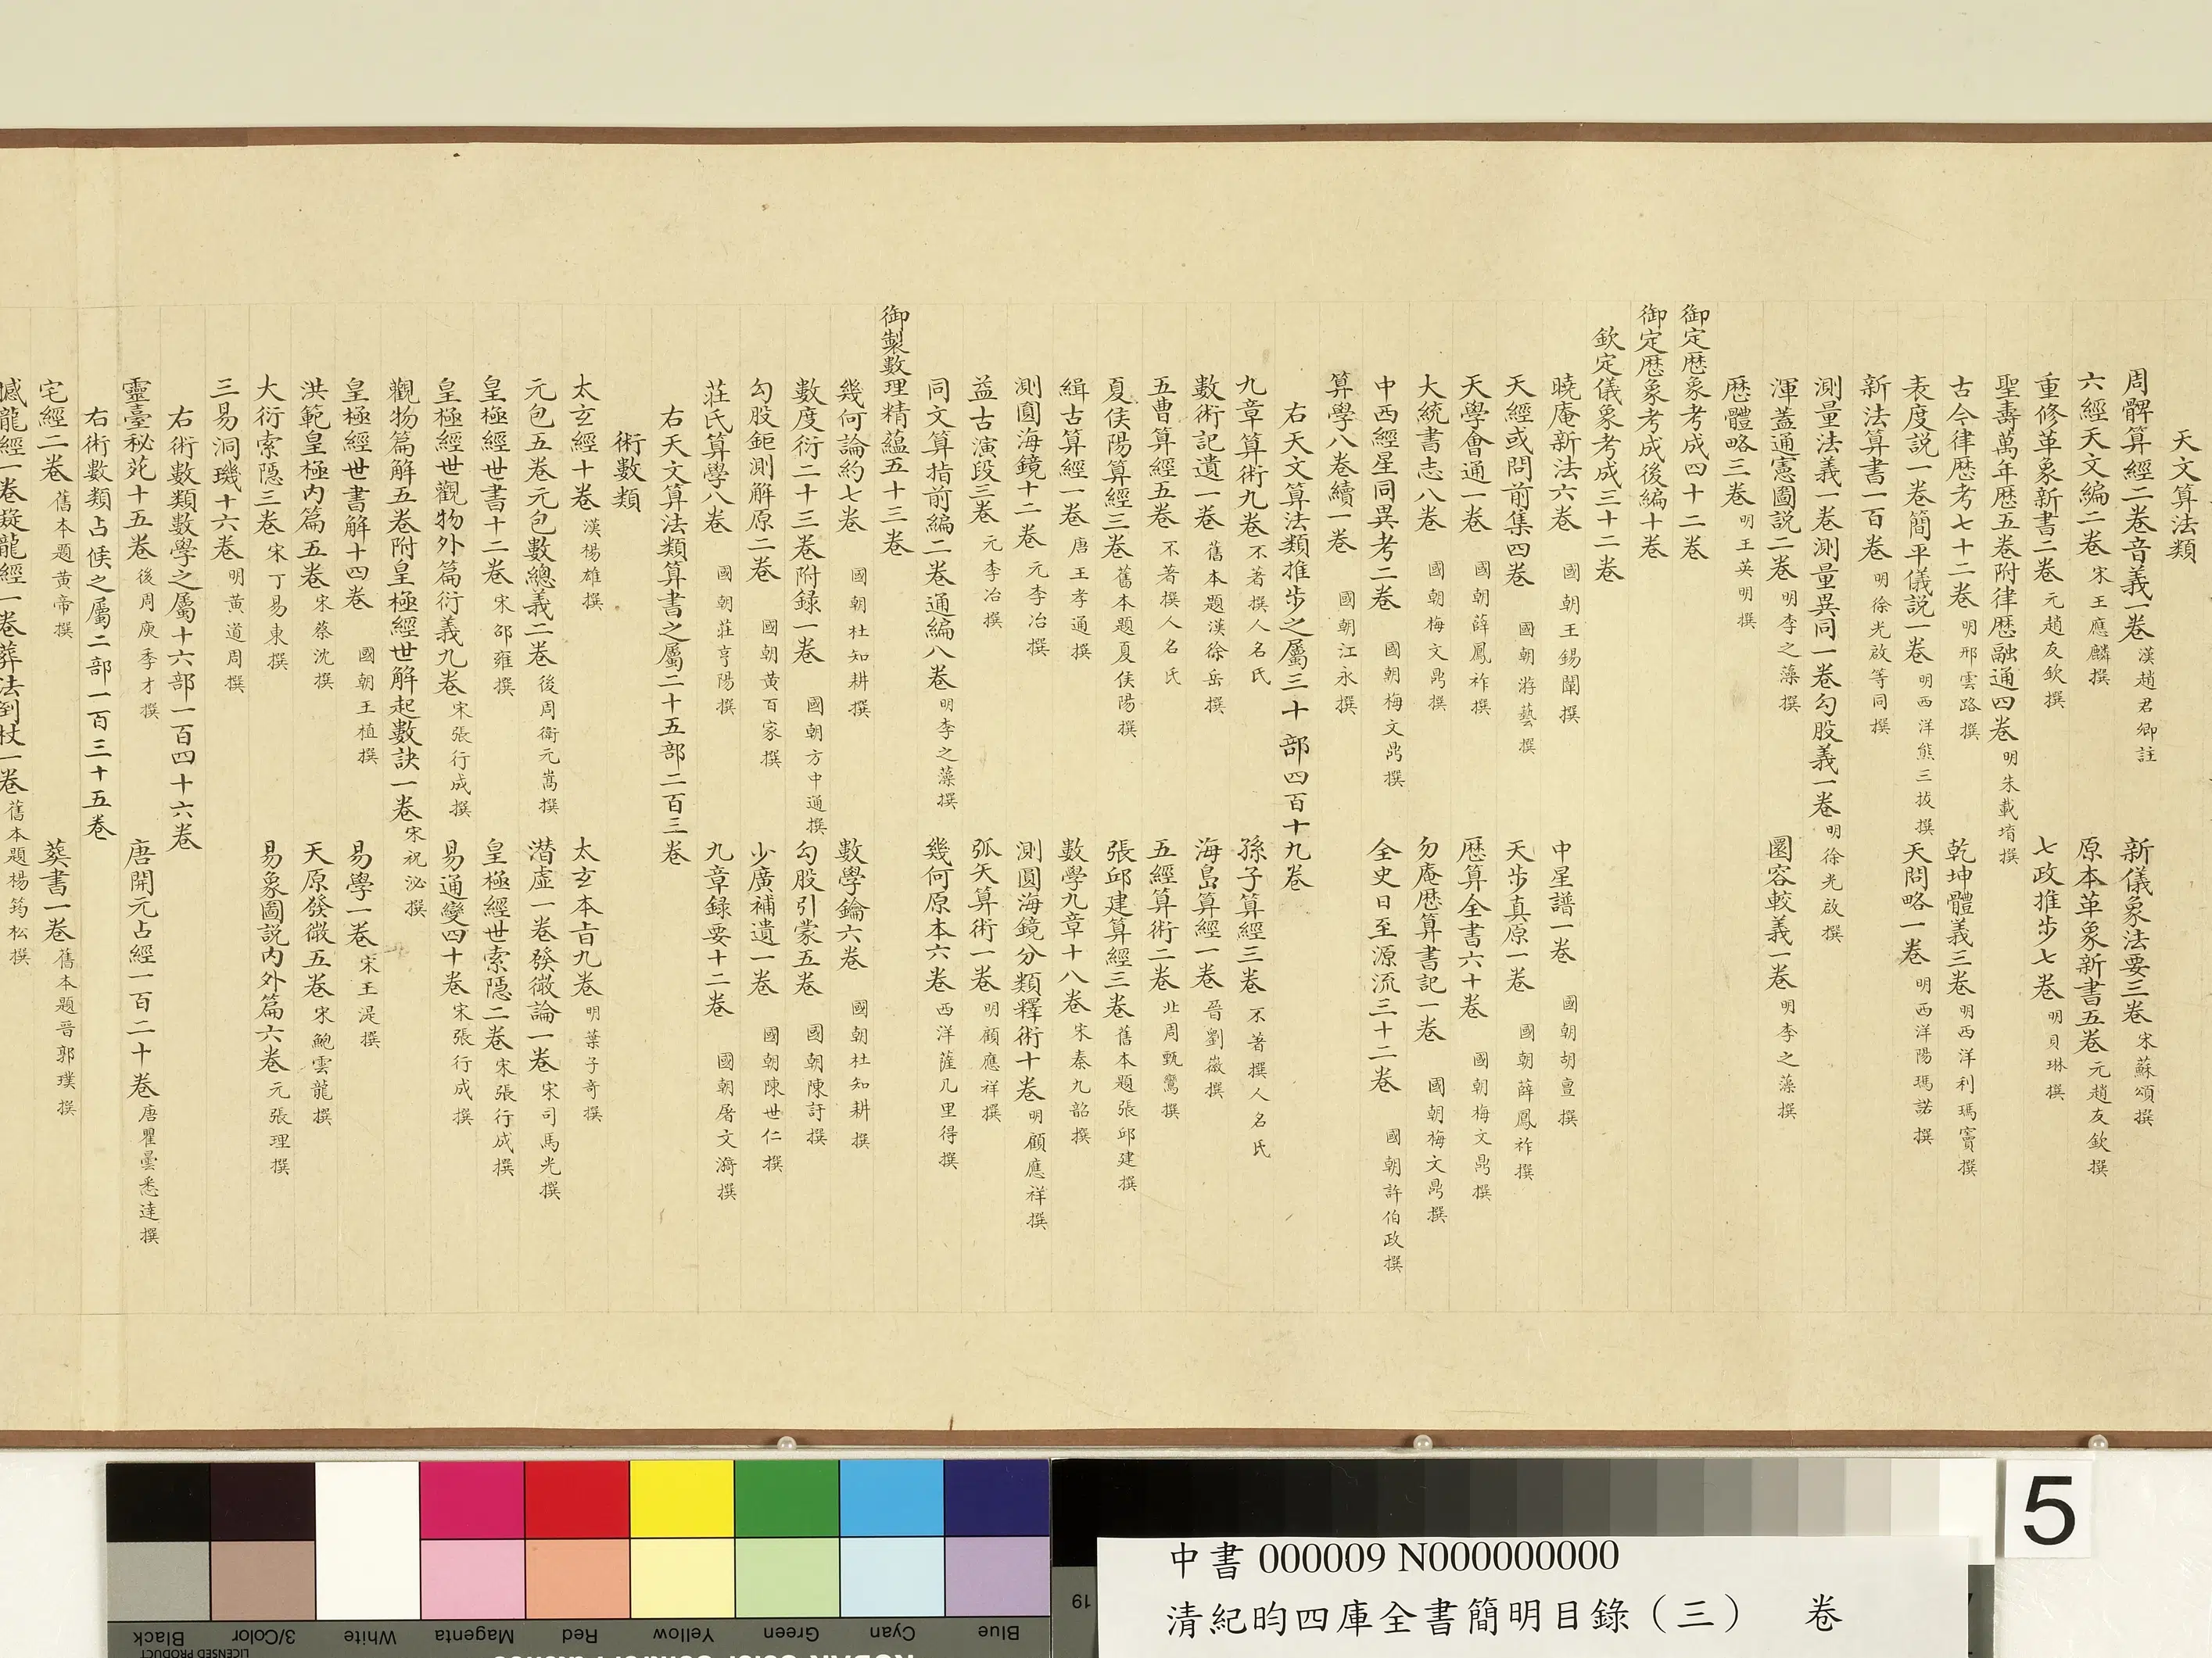 天文算法類
周髀算經二卷音義一卷 漢趙君卿註 新儀象法要三卷 宋蘇頌撰
六經天文編二卷 宋王應麟撰 原本革象新書五卷 元趙友欽撰
重修革象新書二卷 元趙友欽撰 七政推步七卷 明貝琳撰
聖壽萬年歴五卷附律歴融通四卷 明朱載堉撰
古今律歴考七十二卷 明邢雲路撰 乾坤體義三卷 明西洋利瑪竇撰
表度説一卷簡平儀説一卷 明西洋熊三拔撰 天問略一卷 明西洋陽瑪諾撰
新法算書一百卷 明徐光啟等同撰
測量法義一卷測量異同一卷勾股義一卷 明徐光啟撰
渾蓋通憲圖説二卷 明李之藻撰 圜容較義一卷 明李之藻撰
歴體略三卷 明王英明撰
御定歴象考成四十二卷
御定歴象考成後編十卷
欽定儀象考成三十二卷
曉庵新法六卷 國朝王錫闡撰 中星譜一卷 國朝胡亶撰
天經或問前集四卷 國朝游藝撰 天步真原一卷 國朝薛鳳祚撰
天學會通一卷 國朝薛鳳祚撰 歴算全書六十卷 國朝梅文鼎撰
大統書志八卷 國朝梅文鼎撰 勿庵歴算書記一卷 國朝梅文鼎撰
中西經星同異考二卷 國朝梅文鼐撰 全史日至源流三十二卷 國朝許伯政撰
算學八卷續一卷 國朝江永撰
右天文算法類推步之屬三十部四百十九卷
九章算術九卷 不著撰人名氏 孫子算經三卷 不著撰人名氏
數術記遺一卷 舊本題漢徐岳撰 海島算經一卷 晉劉徽撰
五曹算經五卷 不著撰人名氏 五經算術二卷 北周甄鸞撰
夏侯陽算經三卷 舊本題夏侯陽撰 張邱建算經三卷 舊本題張邱建撰
緝古算經一卷 唐王孝通撰 數學九章十八卷 宋秦九韶撰
測圓海鏡十二卷 元李冶撰 測圓海鏡分類釋術十卷 明顧應祥撰
益古演段三卷 元李冶撰 弧矢算術一卷 明顧應祥撰
同文算指前編二卷通編八卷 明李之藻撰 幾何原本六卷 西洋薩几里得撰
御製數理精蘊五十三卷
幾何論約七卷 國朝杜知耕撰 數學鑰六卷 國朝杜知耕撰
數度衍二十三卷附録一卷 國朝方中通撰 勾股引蒙五卷 國朝陳訏撰
勾股鉅測解原二卷 國朝黄百家撰 少廣補遺一卷 國朝陳世仁撰
莊氏算學八卷 國朝莊亨陽撰 九章録要十二卷 國朝屠文漪撰
右天文算法類算書之屬二十五部二百三卷
術數類
太玄經十卷 漢楊雄撰 太玄本旨九卷 明葉子奇撰
元包五卷元包數總義二卷 後周衛元嵩撰 潛虛一卷發微論一卷 宋司馬光撰
皇極經世書十二卷 宋邵雍撰 皇極經世索隱二卷 宋張行成撰
皇極經世觀物外篇衍義九卷 宋張行成撰 易通變四十卷 宋張行成撰
觀物篇解五卷附皇極經世解起數訣一卷 宋祝泌撰
皇極經世書解十四卷 國朝王植撰 易學一卷 宋王湜撰
洪範皇極内篇五卷 宋蔡沈撰 天原發微五卷 宋鮑雲龍撰
大衍索隱三卷 宋丁易東撰 易象圖説内外篇六卷 元張理撰
三易洞璣十六卷 明黄道周撰
右術數類數學之屬十六部一百四十六卷
靈臺秘苑十五卷 後周庾季才撰 唐開元占經一百二十卷 唐瞿曇悉達撰
右術數類占候之屬二部一百三十五卷
宅經二卷 舊本題黄帝撰 葬書一卷 舊本題晉郭璞撰
撼龍經一卷疑龍經一卷葬法倒杖一卷 舊本題楊筠松撰
5
中書 000009 N000000000
清紀昀四庫全書簡明目錄（三） 卷
Black 3/Color White Magenta Red Yellow Green Cyan Blue
LICENSED PRODUCT
19